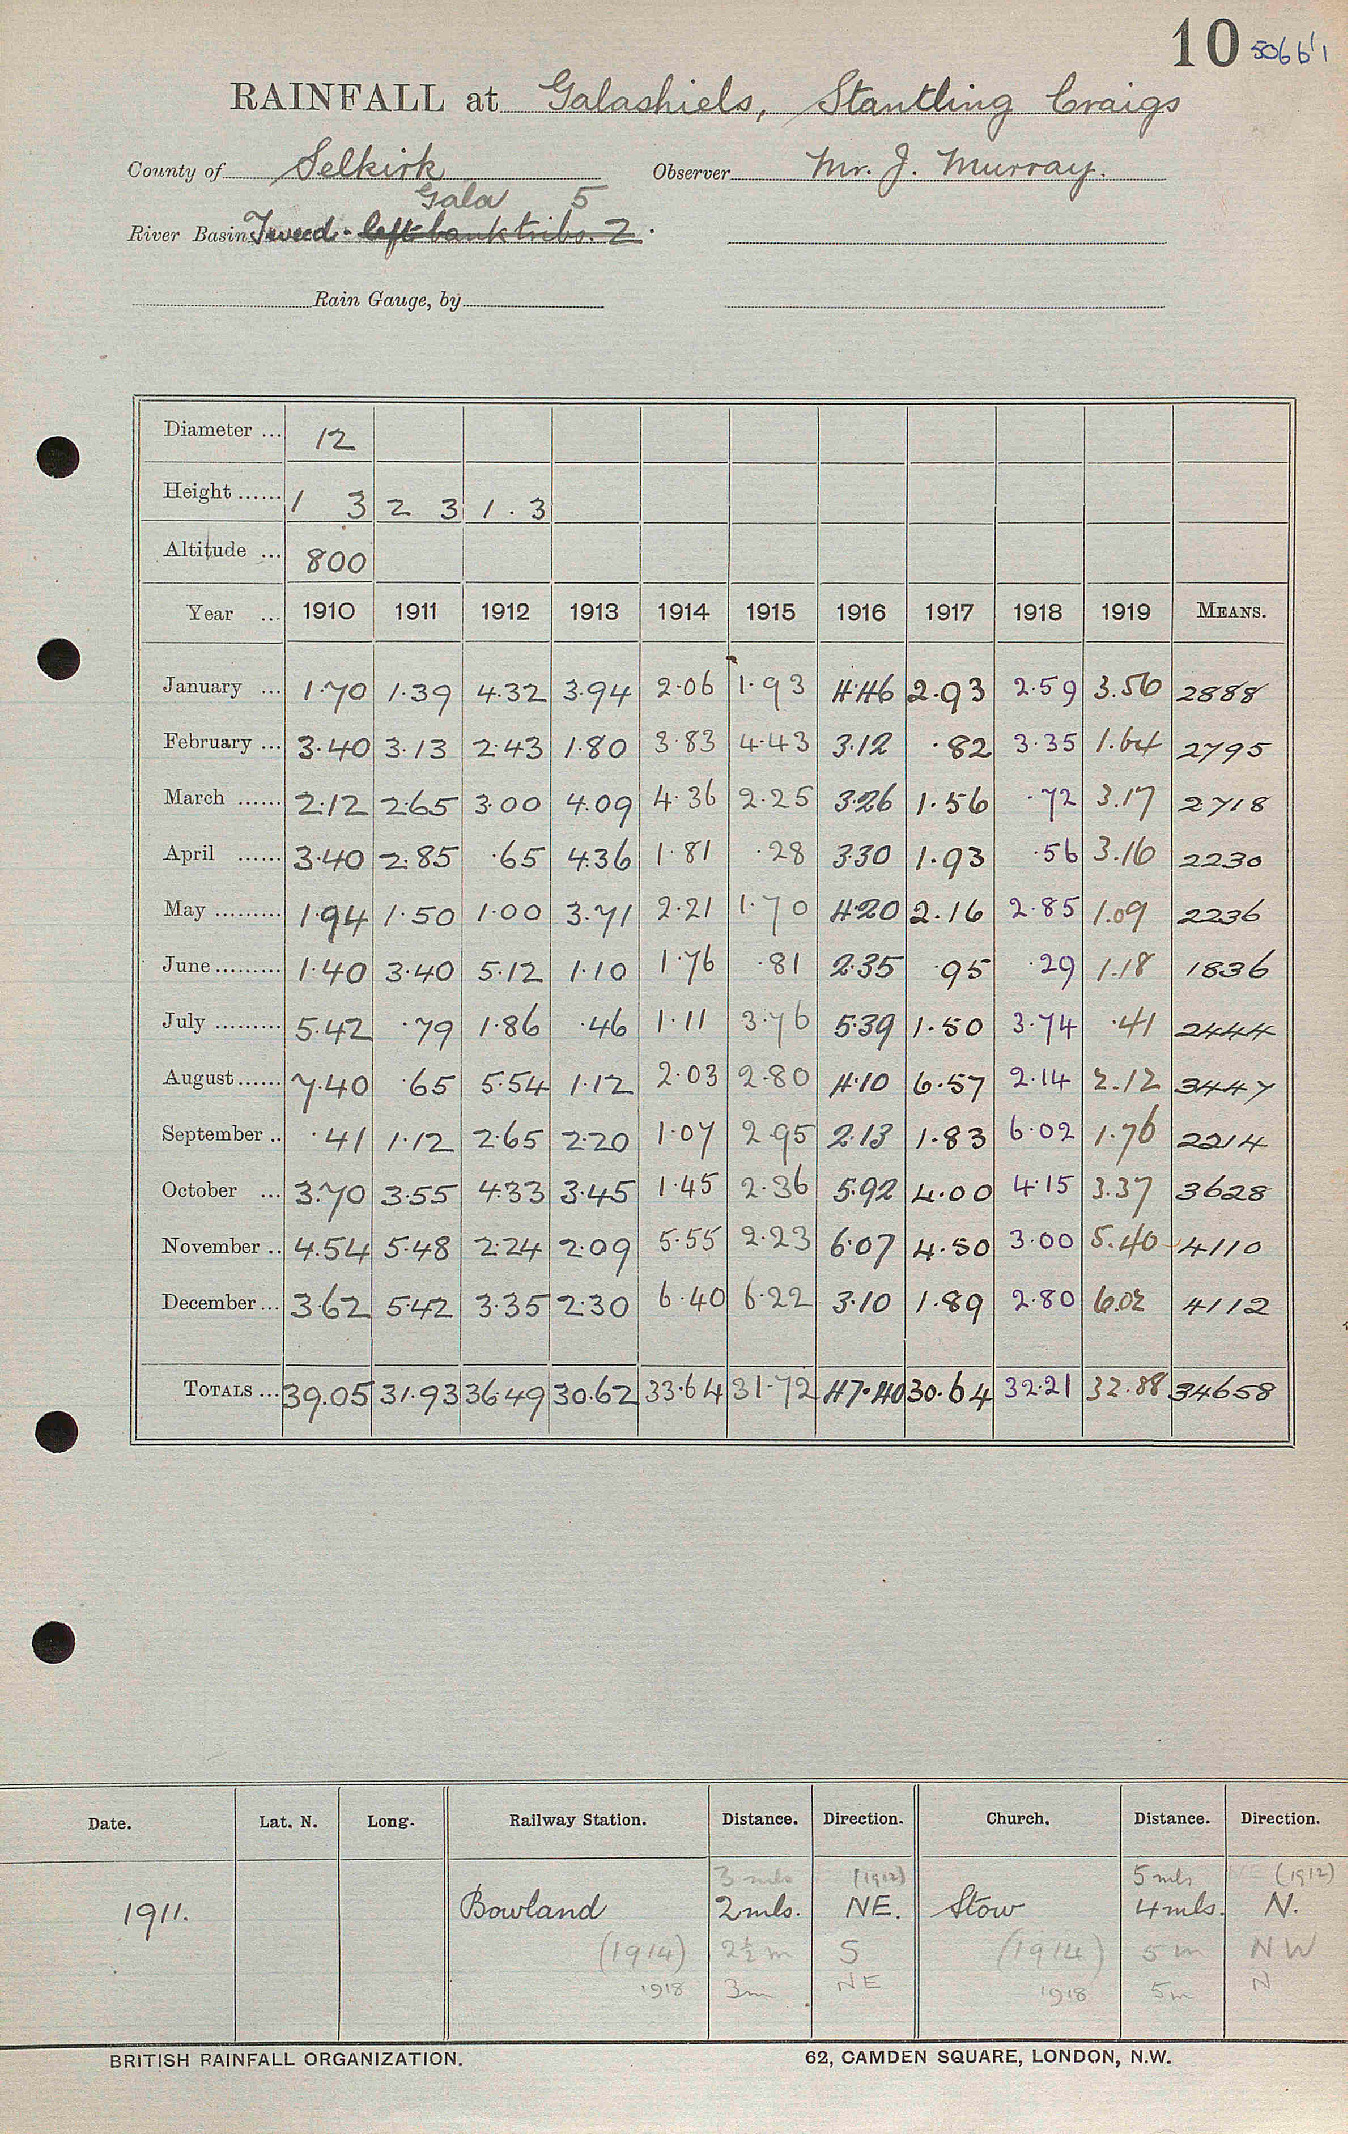 10 5066/1
RAINFALL at Galashiels, Stantling Craigs
County of Selkirk Observer Mr. J. Murray.
Gala 5
River Basin Tweed - left bank tribs. 2.
Rain Gauge, by
Diameter ... 12
Height ...... 1 3 2 3 1 . 3
Altitude ... 800
Year ... 1910 1911 1912 1913 1914 1915 1916 1917 1918 1919 MEANS.
January ... 1.70 1.39 4.32 3.94 2.06 1.93 4.46 2.93 2.59 3.56 2888
February ... 3.40 3.13 2.43 1.80 3.83 4.43 3.12 .82 3.35 1.64 2795
March ...... 2.12 2.65 3.00 4.09 4.36 2.25 3.26 1.56 .72 3.17 2718
April ...... 3.40 2.85 .65 4.36 1.81 .28 3.30 1.93 .56 3.16 2230
May ......... 1.94 1.50 1.00 3.71 2.21 1.70 4.20 2.16 2.85 1.09 2236
June ......... 1.40 3.40 5.12 1.10 1.76 .81 2.35 .95 .29 1.18 1836
July ......... 5.42 .79 1.86 .46 1.11 3.76 5.39 1.50 3.74 .41 2444
August ...... 7.40 .65 5.54 1.12 2.03 2.80 4.10 6.57 2.14 2.12 3447
September .. .41 1.12 2.65 2.20 1.07 2.95 2.13 1.83 6.02 1.76 2214
October ... 3.70 3.55 4.33 3.45 1.45 2.36 5.92 4.00 4.15 3.37 3628
November .. 4.54 5.48 2.24 2.09 5.55 2.23 6.07 4.50 3.00 5.40 4110
December ... 3.62 5.42 3.35 2.30 6.40 6.22 3.10 1.89 2.80 6.02 4112
TOTALS ... 39.05 31.93 36.49 30.62 33.64 31.72 47.40 30.64 32.21 32.88 34658
Date. Lat. N. Long. Railway Station. Distance. Direction. Church. Distance. Direction.
3 mls (1912) 5 mls (1912)
1911. Bowland 2 mls. NE. Stow 4 mls. N.
(1914) 2½ m S (1914) 5 m NW
1918 3m NE 1918 5m N
BRITISH RAINFALL ORGANIZATION. 62, CAMDEN SQUARE, LONDON, N.W.